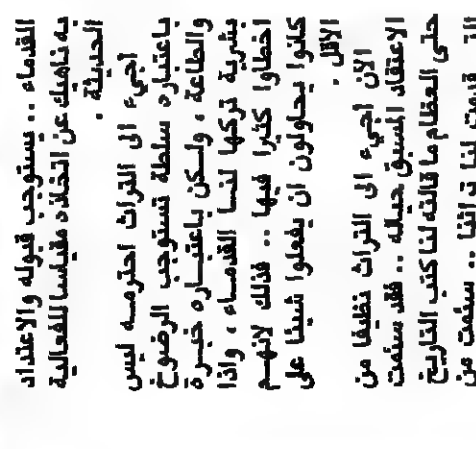 القدماء .. يستوجب قبوله والاعتداد
به ناهيك عن اتخاذه مقياسا للفعالية
الحديثة .
أجيء الى التراث احترمه ليس
باعتباره سلطة تستوجب الرضوخ
والطاعة ، ولكن باعتباره خبرة
بشرية تركها لنا القدماء ، واذا
اخطأوا كثيرا فيها .. فذلك لانهم
كانوا يحاولون ان يفعلوا شيئا على
الاقل .
الآن أجيء الى التراث نظيفا من
الاعتقاد المسبق حياله .. فقد سئمت
حتى العظام ما قالته لنا كتب التاريخ
التي قدمت لنا تراثنا .. سئمت من